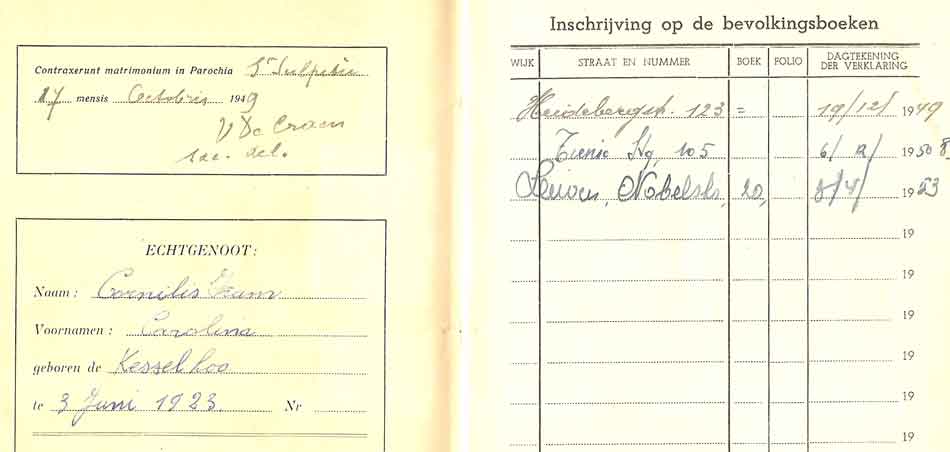 Contraxerunt matrimonium in Parochia St Sulpitii
17 mensis Octobris 1949
V De
sac. del.
ECHTGENOOT:
Naam: Cornilis
Voornamen: Carolina
geboren de Kessel Loo
te 3 Juni 1923. Nr
Inschrijving op de bevolkingsboeken
WIJK STRAAT EN NUMMER BOEK FOLIO DAGTEKENING DER VERKLARING
Heidebergstr. 123 = 19/12/ 1949
Tiense Stg, 105 6/12/ 1950
Leuven, Nobelstr, 20, 8/4/ 1953
19
19
19
19
19
19